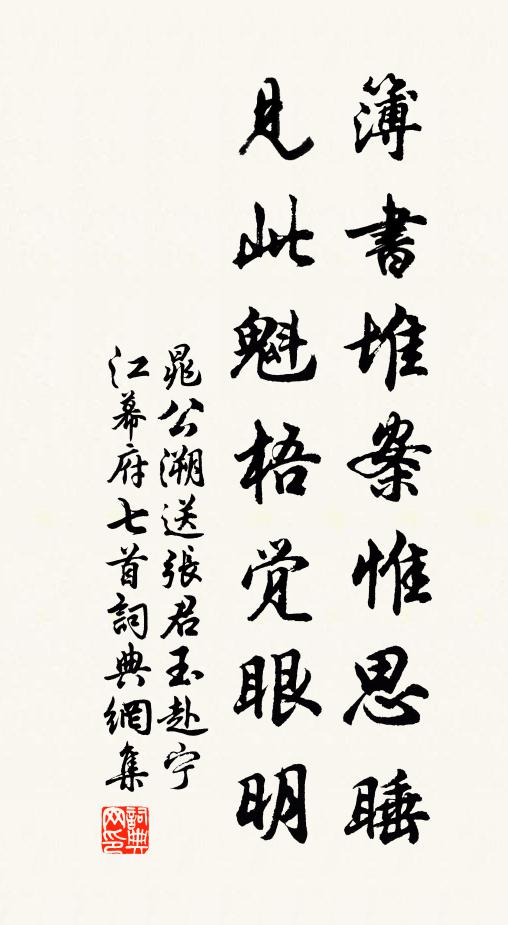 簿書堆案惟思睡
見此魁梧觉眼明
晁公溯送張君玉赴宁
江幕府七首詞典網集
詞典
网印